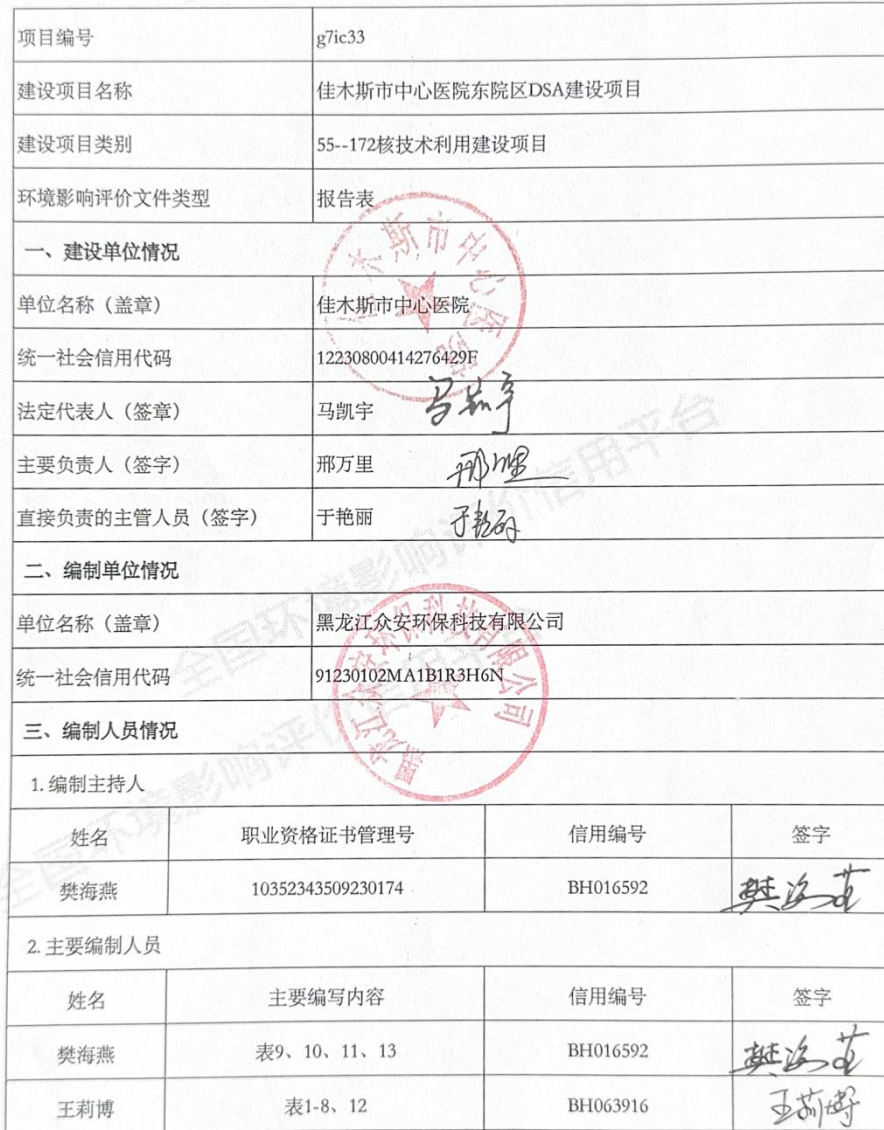 项目编号 g7ic33
建设项目名称 佳木斯市中心医院东院区DSA建设项目
建设项目类别 55--172核技术利用建设项目
环境影响评价文件类型 报告表
一、建设单位情况
单位名称（盖章） 佳木斯市中心医院
统一社会信用代码 12230800414276429F
法定代表人（签章） 马凯宇 马凯宇
主要负责人（签字） 邢万里 邢万里
直接负责的主管人员（签字） 于艳丽 于艳丽
二、编制单位情况
单位名称（盖章） 黑龙江众安环保科技有限公司
统一社会信用代码 91230102MA1B1R3H6N
三、编制人员情况
1. 编制主持人
姓名 职业资格证书管理号 信用编号 签字
樊海燕 10352343509230174 BH016592 樊海燕
2. 主要编制人员
姓名 主要编写内容 信用编号 签字
樊海燕 表9、10、11、13 BH016592 樊海燕
王莉博 表1-8、12 BH063916 王莉博
佳木斯市中心医院
黑龙江众安环保科技有限公司
全国环境影响评价信用平台
全国环境影响评价信用平台